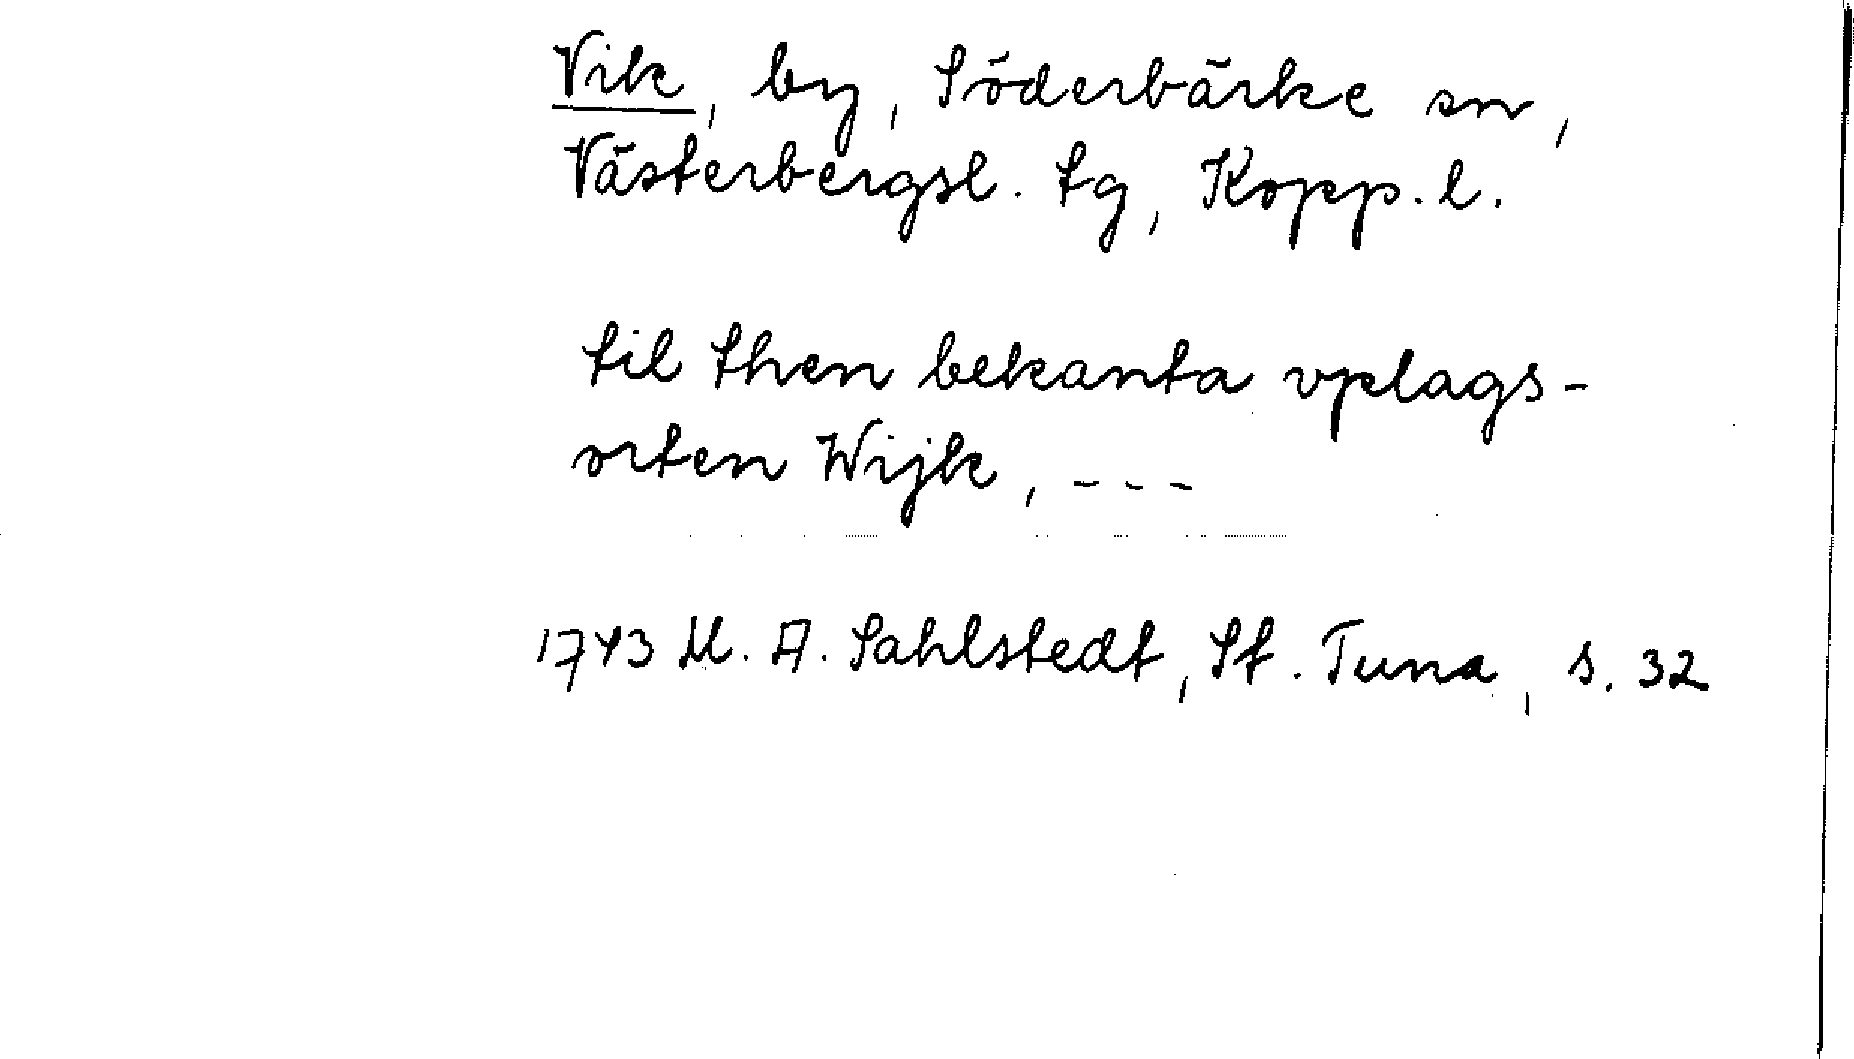 Vik, by, Söderbärke sn,
Västerbergsl. tg, Kopp. l.
til then bekanta vplags-
orten Wijk, ---
1743 M. A. Sahlstedt, St. Tuna, s. 32